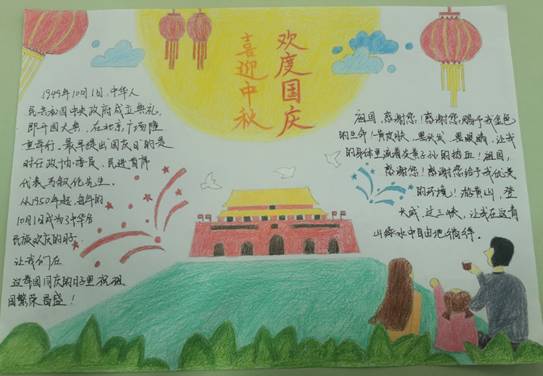 欢度国庆
喜迎中秋
1949年10月1日,中华人
民共和国中央政府成立典礼,
即开国大典,在北京广场隆
重举行,最早提出"国庆日"的是
时任政协委员、民进首席
代表马叙伦先生。
从1950年起,每年的
10月1日成为了中华各
民族欢庆的日子
让我们在
这举国同庆的日子里祝祖
国繁荣昌盛!
祖国,感谢您!感谢您,赐予我金色
的生命!黄皮肤、黑头发、黑眼睛,让我
的身体里流着炎黄子孙的热血!祖国,
感谢您!感谢您给予我优美
的环境!游青山,登
长城,过三峡,让我在这青
山绿水中自由地徜徉.